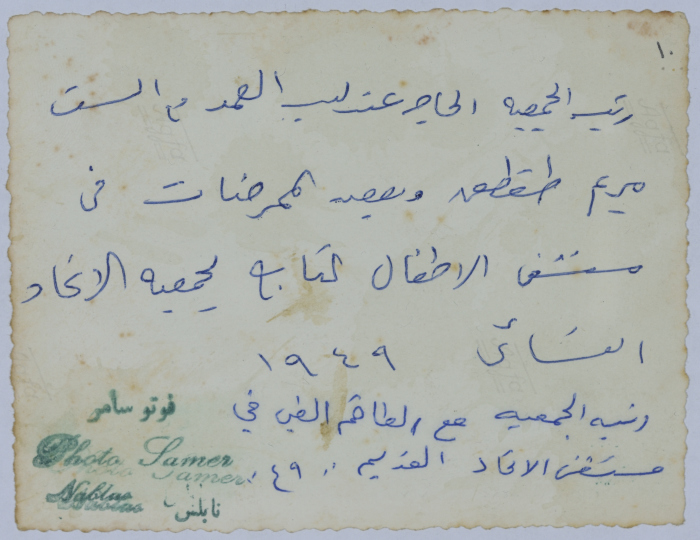 ١٠
رئيسة الجمعيه الحاجه عندليب العمد مع الست
مريم طقطق وبعض الممرضات في
مستشفى الاطفال التابع لجمعيه الاتحاد
النسائي ١٩٤٩
رئيسه الجمعيه مع الطاقم الفني في
مستشفى الاتحاد القديم ٤٩
فوتو سامر
Photo Samer
Nablus
نابلس